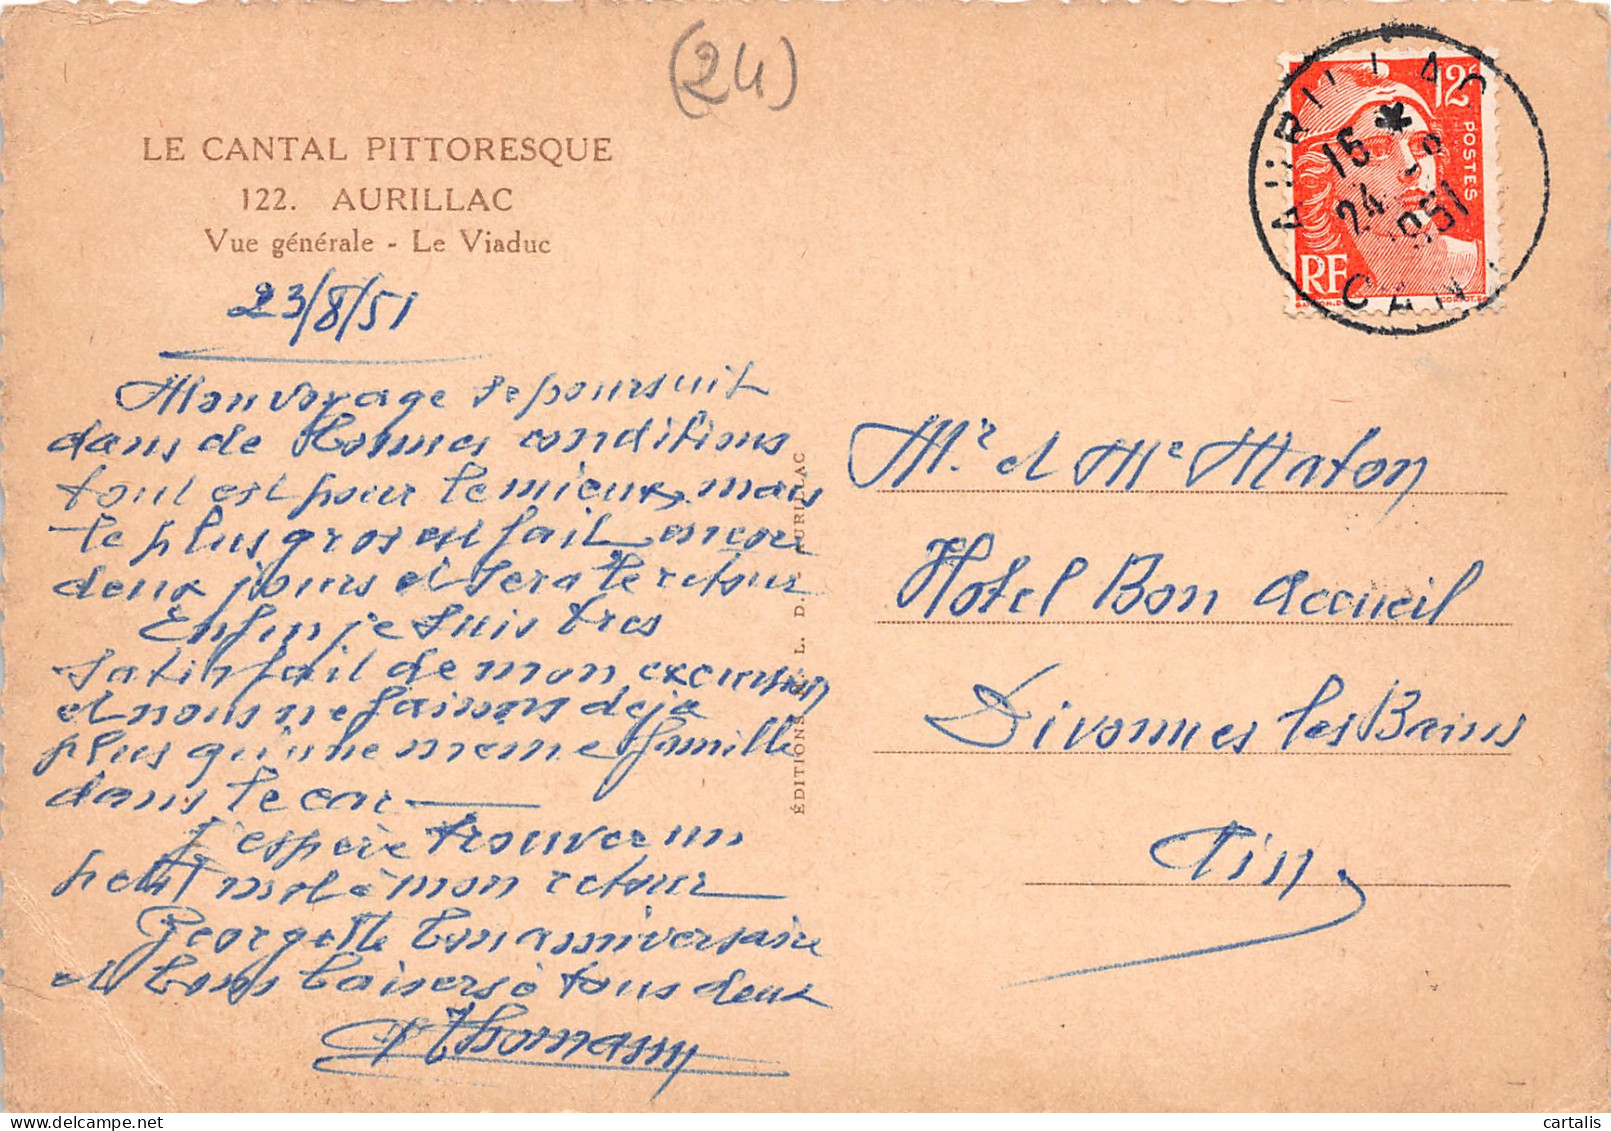 (24)
LE CANTAL PITTORESQUE
122. AURILLAC
Vue générale - Le Viaduc
23/8/51
Mon voyage se poursuit
dans de bonnes conditions
tout est pour le mieux, mais
le plus gros est fait encore
deux jours et sera le retour
Enfin je suis tres
satisfait de mon excursion
et nous ne faisons deja
plus qu'une meme famille
dans le car
J'espère trouver un
petit mot à mon retour
Georgette bon anniversaire
et bons baisers à tous deux
Thomann
ÉDITIONS L. D. AURILLAC
12F
POSTES
RF
AURILLAC
15 *
24 -8
1951
CANT
Mr et Me Maton
Hotel Bon Accueil
Divonnes les Bains
Ain
cartalis